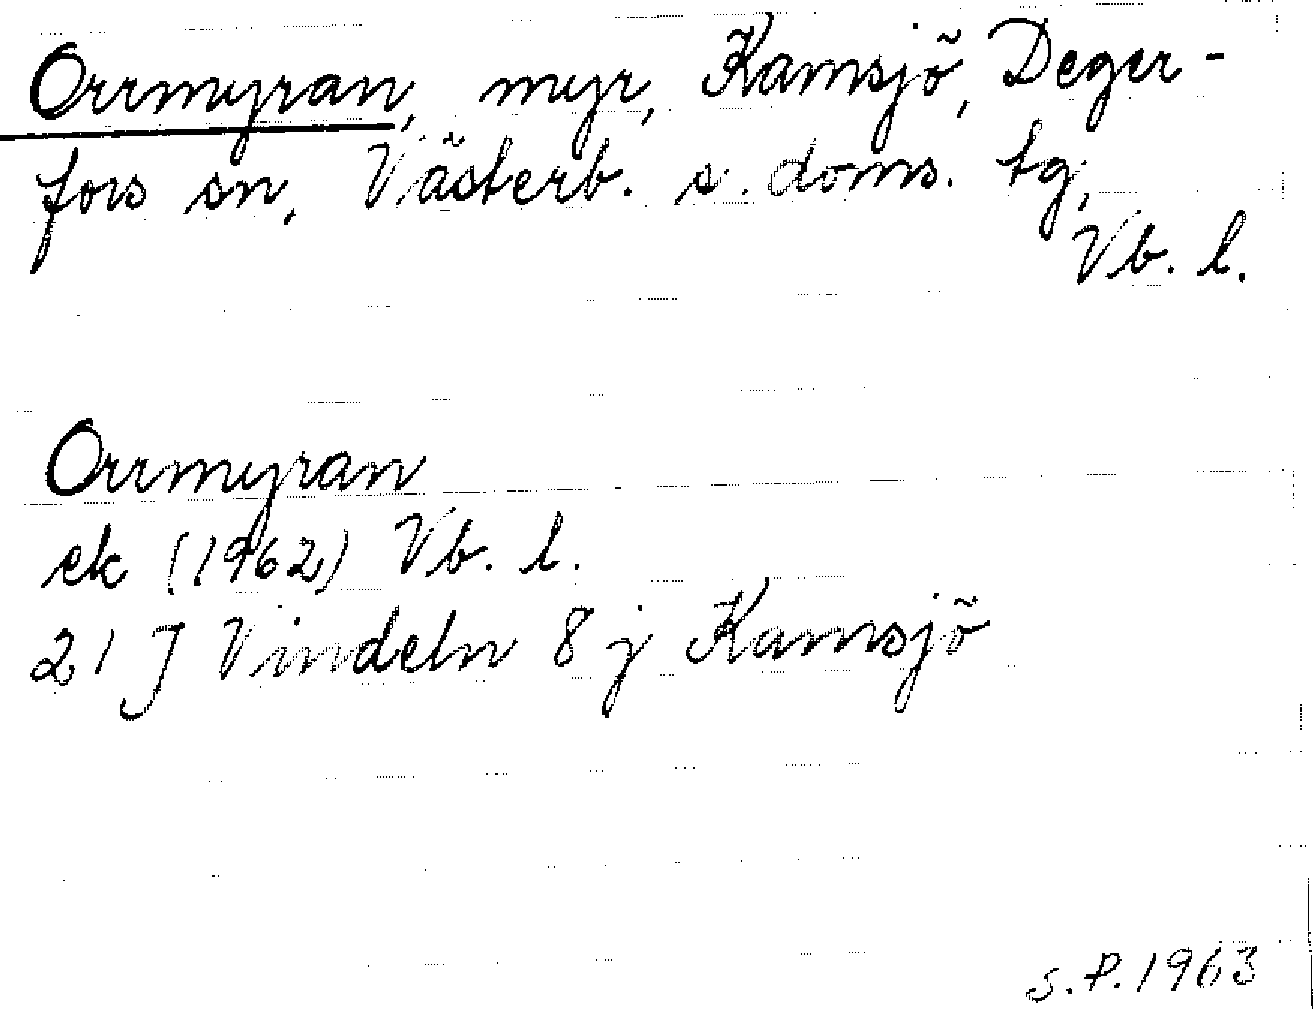 Orrmyran, myr, Kamsjö, Deger-
fors sn, Västerb. s. doms. tg,
Vb. l.
Orrmyran
ek (1962) Vb. l.
21 J Vindeln 8 j Kamsjö
S.P. 1963